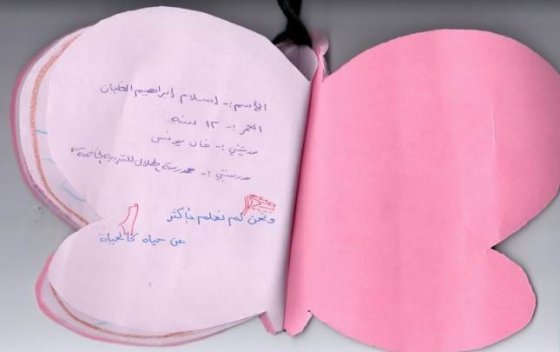 الأسم :- إسلام إبراهيم الطبان
العمر :- ١٣ سنه
مدينتي :- خان يونس
مدرستي :- مدرسة الهلال للتربية الخاصة
ونحن لم نحلم بأكثر
من حياة كالحياة